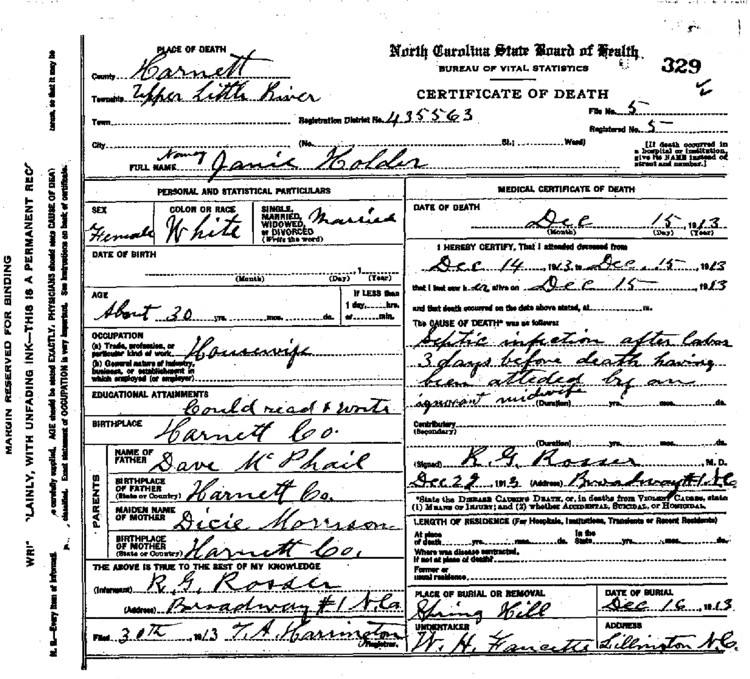 North Carolina State Board of Health
BUREAU OF VITAL STATISTICS
329
CERTIFICATE OF DEATH
PLACE OF DEATH
County Harnett
Township Upper Little River
Town
Registration District No. 435563
File No. 5
Registered No. 5
City (No. St.; Ward)
[If death occurred in a hospital or institution, give its NAME instead of street and number.]
FULL NAME Nancy Janie Holder
PERSONAL AND STATISTICAL PARTICULARS
SEX Female
COLOR OR RACE White
SINGLE, MARRIED, WIDOWED, or DIVORCED (Write the word) Married
DATE OF BIRTH
(Month) (Day) (Year)
AGE
About 30 yrs. mos. ds.
If LESS than 1 day, hrs. or min.
OCCUPATION
(a) Trade, profession, or particular kind of work Housewife
(b) General nature of industry, business, or establishment in which employed (or employer)
EDUCATIONAL ATTAINMENTS
Could read & write
BIRTHPLACE
Harnett Co.
PARENTS
NAME OF FATHER Dave McPhail
BIRTHPLACE OF FATHER (State or Country) Harnett Co.
MAIDEN NAME OF MOTHER Dicie Morrison
BIRTHPLACE OF MOTHER (State or Country) Harnett Co.
THE ABOVE IS TRUE TO THE BEST OF MY KNOWLEDGE
(Informant) R. G. Rosser
(Address) Broadway #1 N.C.
Filed 30th, 1913 T. A. Harrington
Registrar.
MEDICAL CERTIFICATE OF DEATH
DATE OF DEATH
Dec 15 1913
(Month) (Day) (Year)
I HEREBY CERTIFY, That I attended deceased from
Dec 14, 1913 to Dec. 15, 1913
that I last saw her alive on Dec 15, 1913
and that death occurred on the date above stated, at m.
The CAUSE OF DEATH* was as follows:
Septic infection after labor
3 days before death having
been atteded by an
ignorant midwife
(Duration) yrs. mos. ds.
Contributory
(Secondary)
(Duration) yrs. mos. ds.
(Signed) R. G. Rosser, M. D.
Dec 22, 1913 (Address) Broadway #1 N.C.
*State the DISEASE CAUSING DEATH, or, in deaths from VIOLENT CAUSES, state (1) MEANS OF INJURY; and (2) whether ACCIDENTAL, SUICIDAL, OR HOMICIDAL.
LENGTH OF RESIDENCE (For Hospitals, Institutions, Transients or Recent Residents)
At place of death yrs. mos. ds. In the State yrs. mos. ds.
Where was disease contracted, if not at place of death?
Former or usual residence
PLACE OF BURIAL OR REMOVAL
Spring Hill
DATE OF BURIAL
Dec 16, 1913
UNDERTAKER
W. H. Faucette
ADDRESS
Lillington N.C.
MARGIN RESERVED FOR BINDING
PLAINLY, WITH UNFADING INK—THIS IS A PERMANENT REC
N. B.—Every item of informat
carefully supplied. AGE should be stated EXACTLY. PHYSICIANS should state CAUSE OF DEAT
terms, so that it may be
classified. Exact statement of OCCUPATION is very important. See instructions on back of certificate.